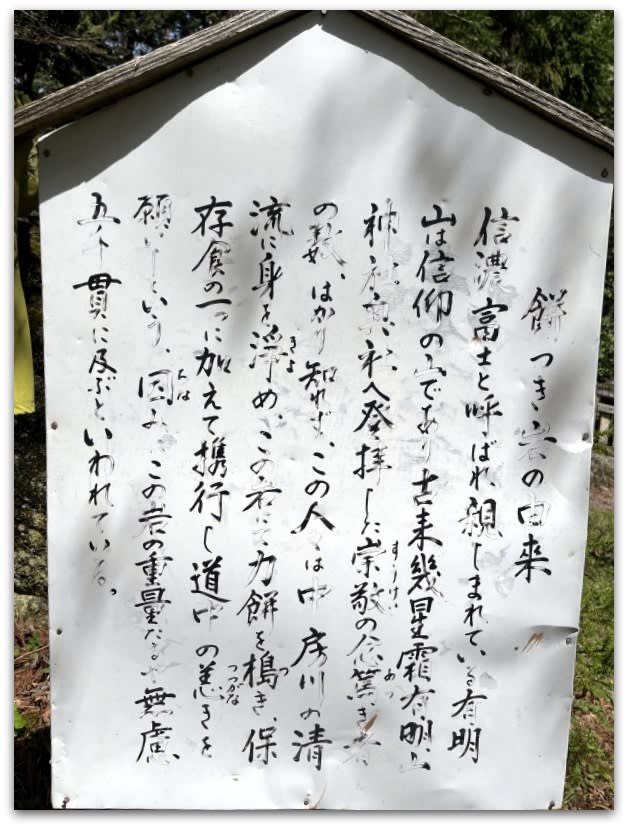 餅つき岩の由来
信濃富士と呼ばれ親しまれている有明
山は信仰の山であり古来幾星霜有明山
神社奥社へ登拝した崇敬の念篤き者
すうけい
あつ
の数、はかり知れず、この人々は中房川の清
流に身を淨め、この岩にて力餅を搗き、保
きよ
つ
存食の一つに加えて携行し道中の恙きを
つつがな
願いしという、因みにこの岩の重量たるや無慮
五千貫に及ぶといわれている。